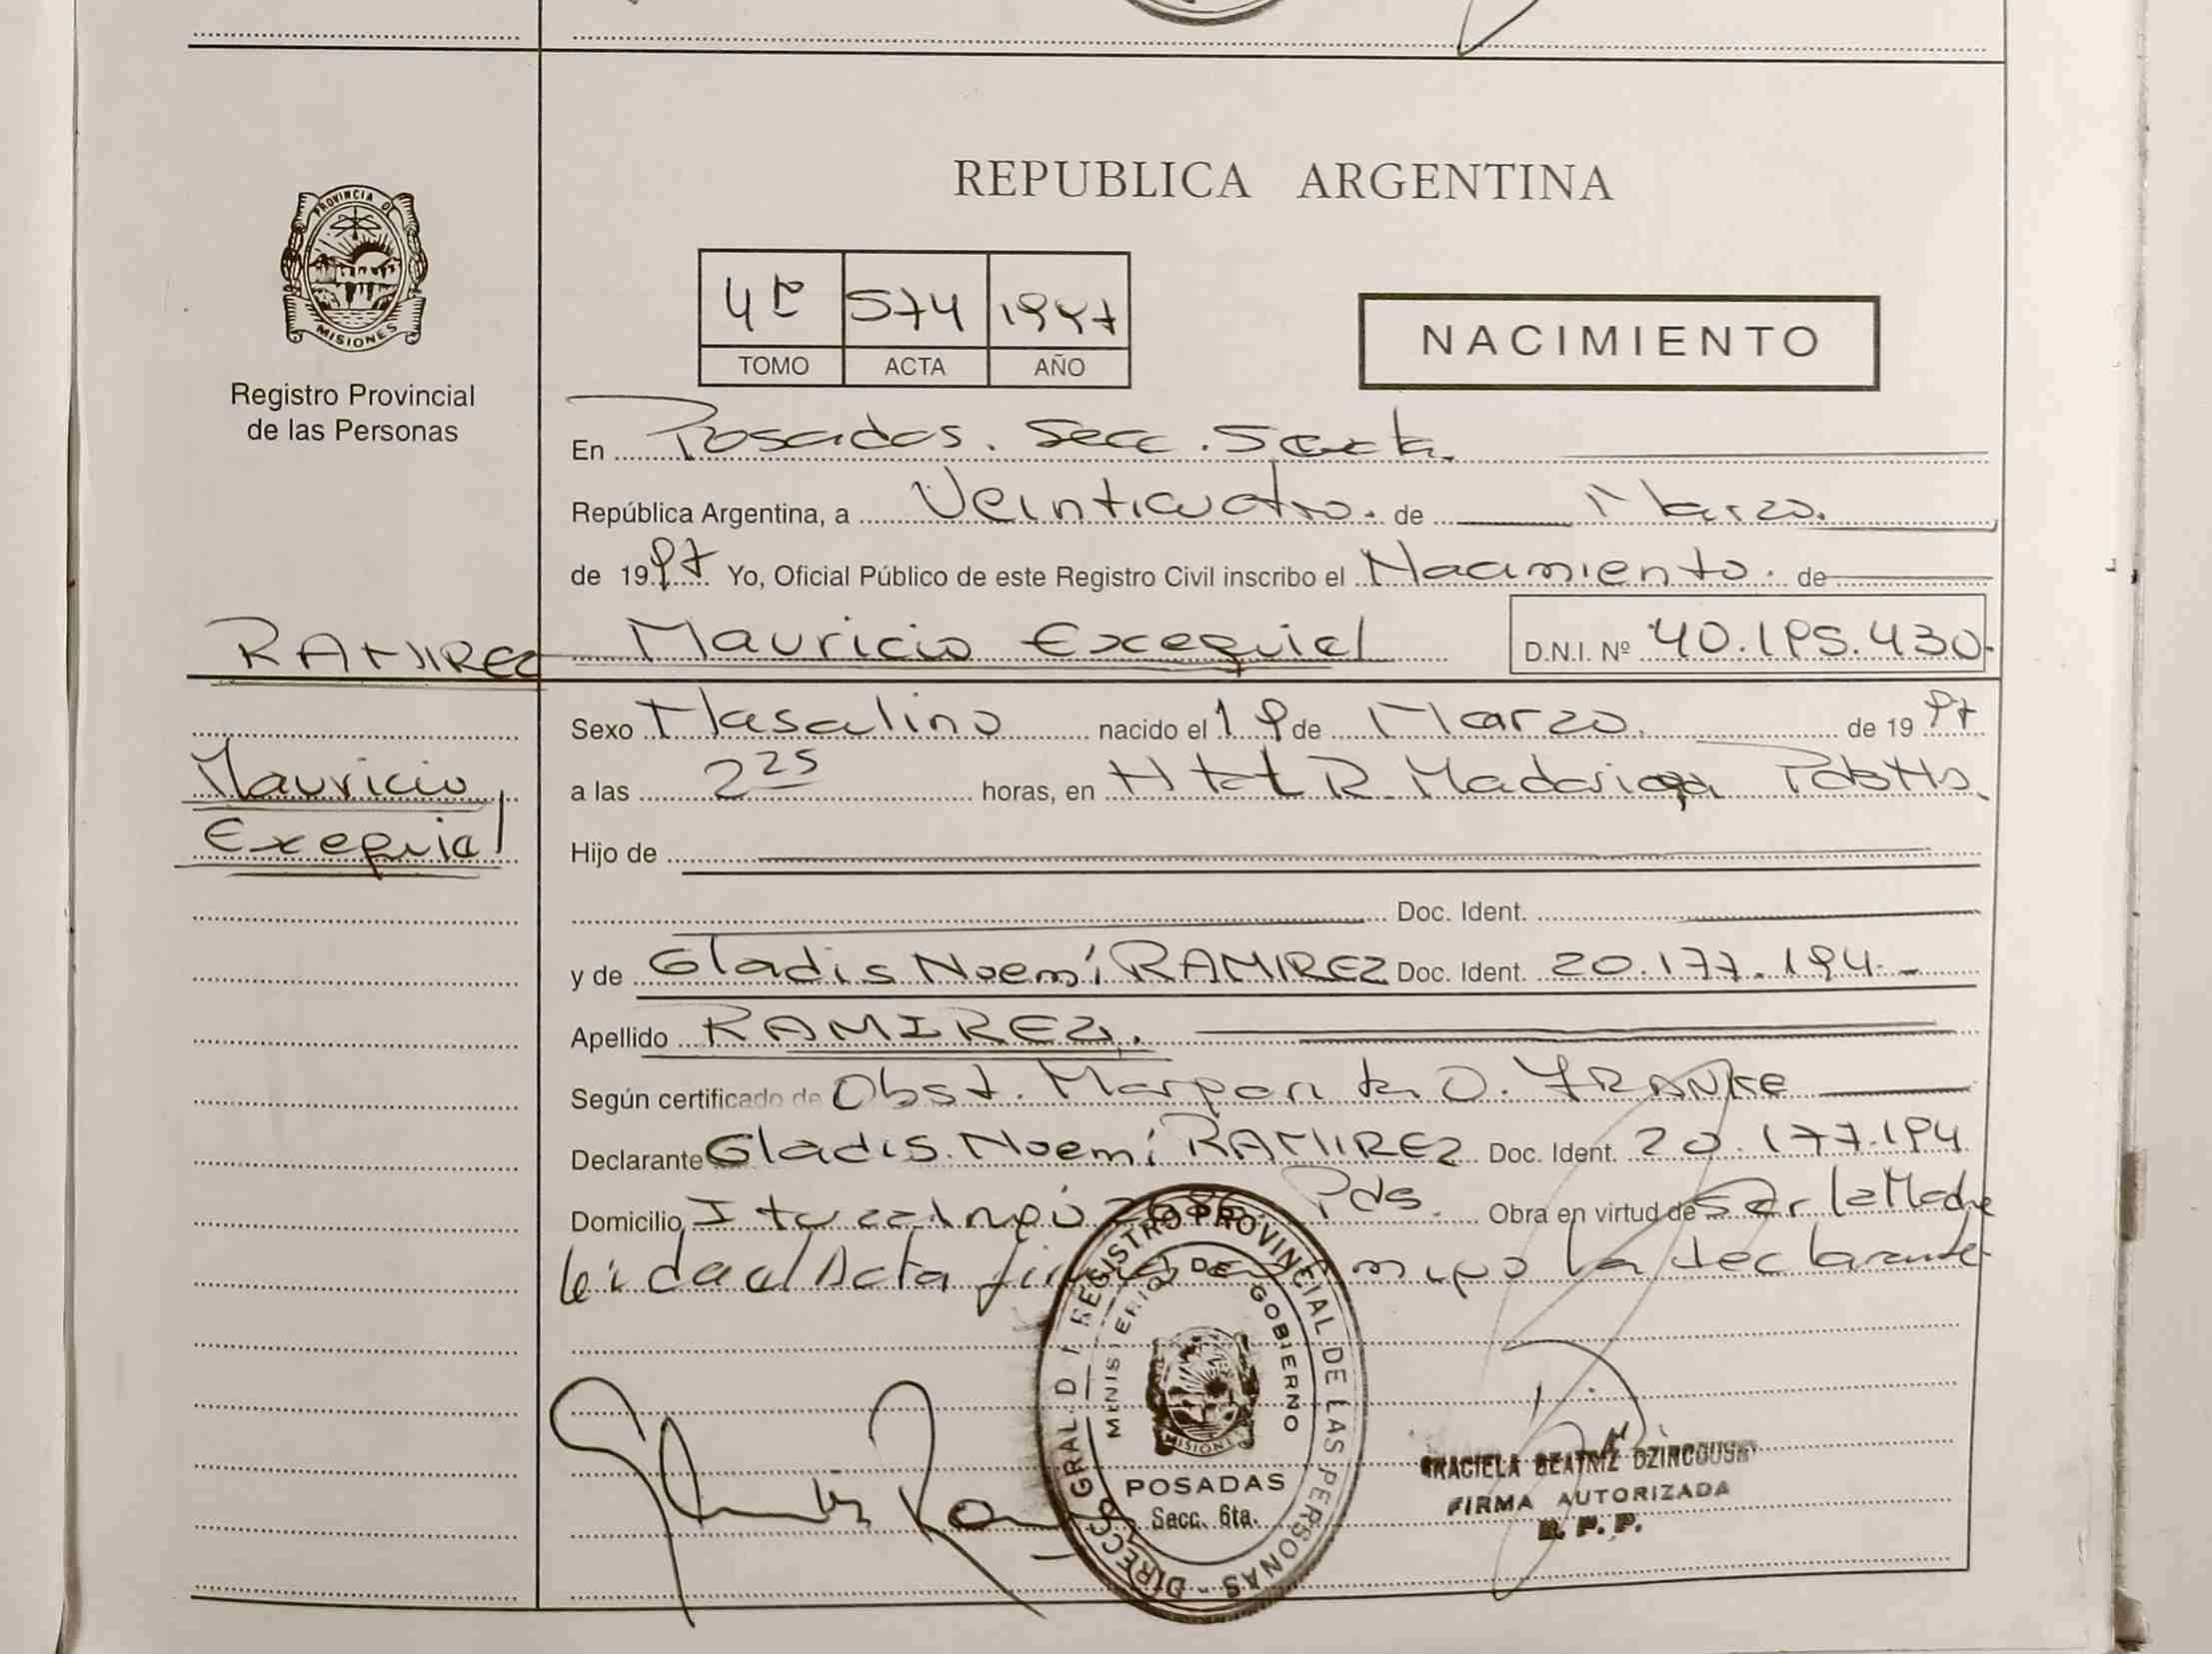 REPUBLICA ARGENTINA
PROVINCIA DE
MISIONES
Registro Provincial
de las Personas
4º 574 1997
TOMO ACTA AÑO
NACIMIENTO
En Posadas. Secc. Sexta.
República Argentina, a Veinticuatro. de Marzo.
de 1997 Yo, Oficial Público de este Registro Civil inscribo el Nacimiento. de
RAMIREZ Mauricio Exequiel D.N.I. Nº 40.195.430.
Sexo Masculino nacido el 19 de Marzo. de 1997
Mauricio
Exequiel
a las 2 25 horas, en Htal R. Madariaga Pdas Ms.
Hijo de
Doc. Ident.
y de Gladis Noemí RAMIREZ Doc. Ident. 20.177.194.
Apellido RAMIREZ.
Según certificado de Obst. Margarita O. FRANKE
Declarante Gladis Noemí RAMIREZ Doc. Ident. 20.177.194
Domicilio Ituzaingó Pds. Obra en virtud de Ser la Madre
leida el Acta la declarante
DIRECC. GRAL. D REGISTRO PROVINCIAL DE LAS PERSONAS -
MINISTERIO DE GOBIERNO
MISIONES
POSADAS
Secc. 6ta.
GRACIELA BEATRIZ
FIRMA AUTORIZADA
R. P. P.